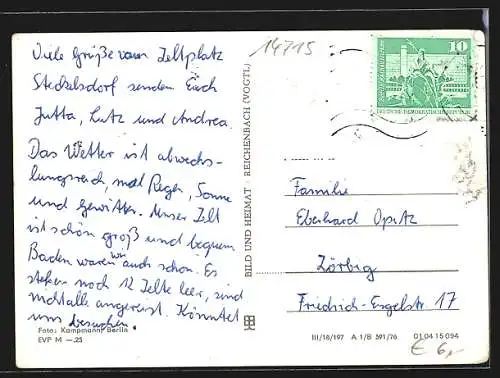 Viele Grüße vom Zeltplatz
Steckelsdorf senden Euch
Jutta, Lutz und Andrea.
Das Wetter ist abwechs-
lungsreich, mal Regen, Sonne
und Gewitter. Unser Zelt
ist schön groß und bequem.
Baden waren wir auch schon. Es
stehen noch 12 Zelte leer, sind
nicht alle angereist. Könntet
uns besuchen.
Foto: Kampmann, Berlin
EVP M —.25
14715
BILD UND HEIMAT REICHENBACH (VOGTL)
10
Familie
Eberhard Opitz
Zörbig
Friedrich-Engelstr 17
III/18/197 A 1/B 591/76 01 04 15 094
€ 6,-